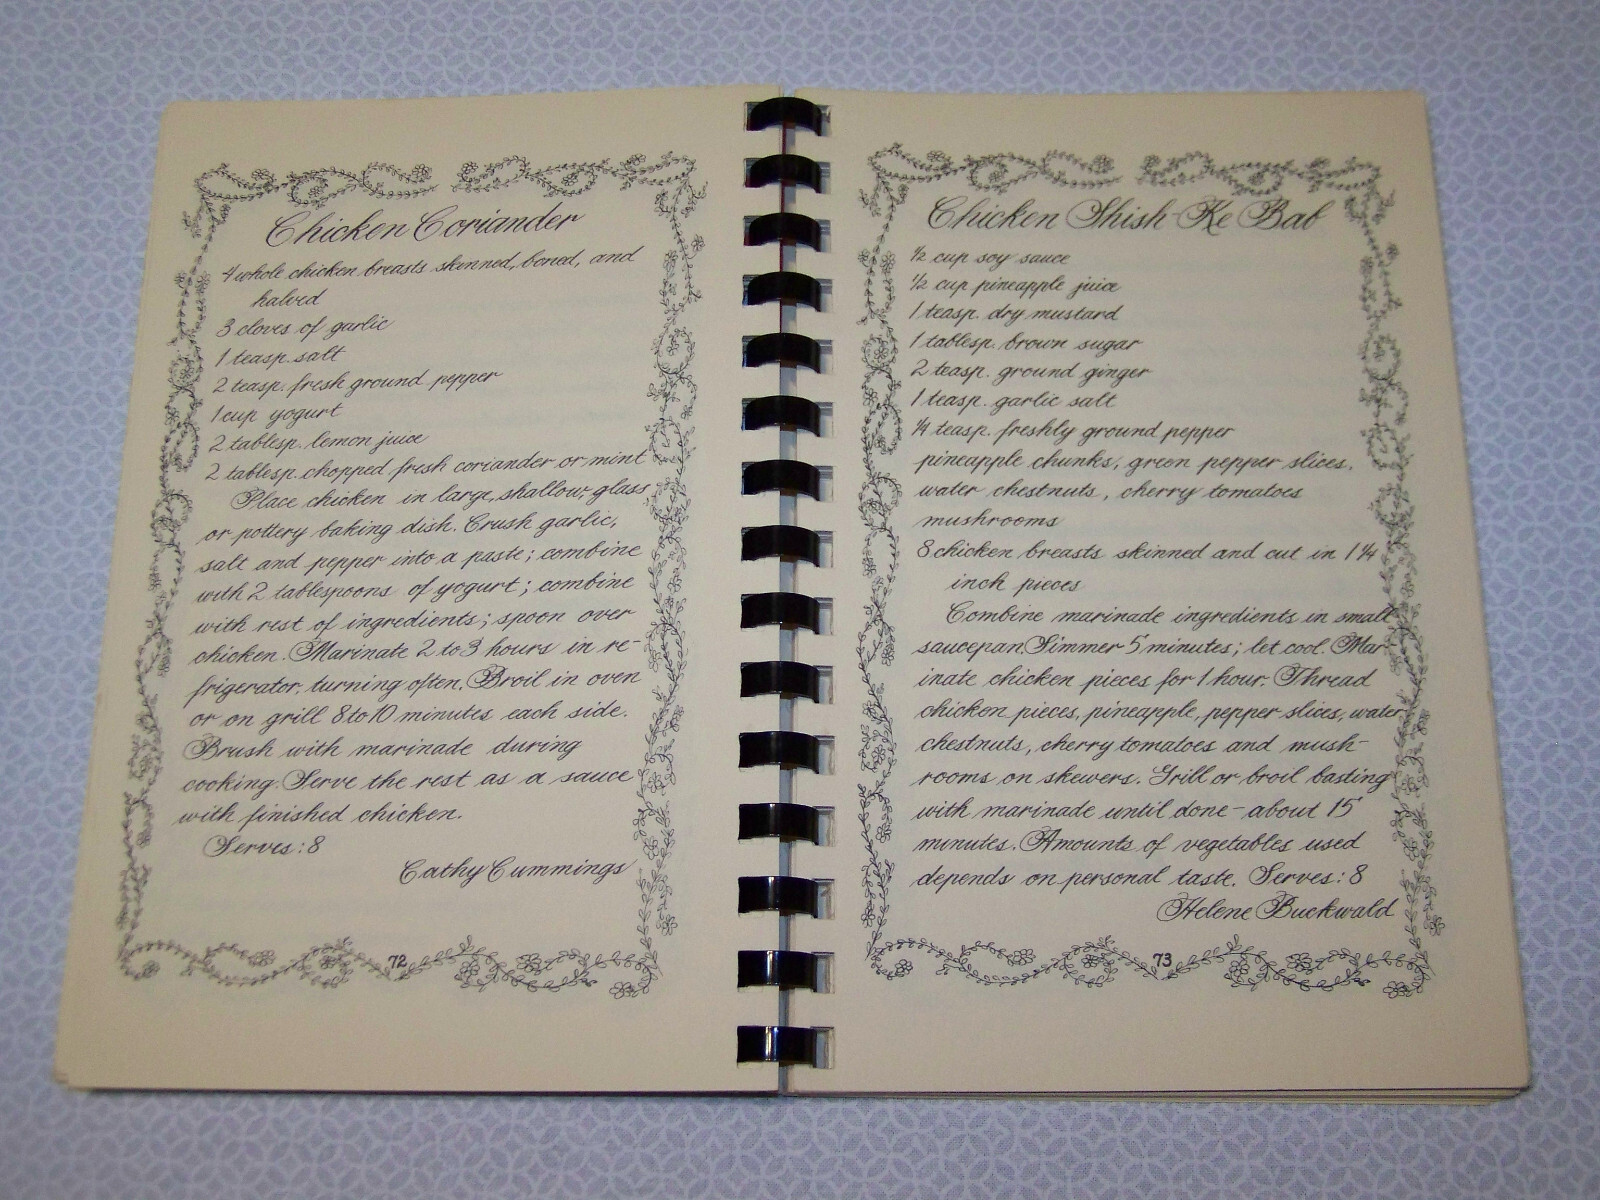 Chicken Coriander
4 whole chicken breasts skinned, boned, and
halved
3 cloves of garlic
1 teasp. salt
2 teasp. fresh ground pepper
1 cup yogurt
2 tablesp. lemon juice
2 tablesp. chopped fresh coriander or mint
Place chicken in large, shallow, glass
or pottery baking dish. Crush garlic,
salt and pepper into a paste; combine
with 2 tablespoons of yogurt; combine
with rest of ingredients; spoon over
chicken. Marinate 2 to 3 hours in re-
frigerator, turning often. Broil in oven
or on grill 8 to 10 minutes each side.
Brush with marinade during
cooking. Serve the rest as a sauce
with finished chicken.
Serves: 8
Cathy Cummings
72
Chicken Shish-Ke Bab
½ cup soy sauce
½ cup pineapple juice
1 teasp. dry mustard
1 tablesp. brown sugar
2 teasp. ground ginger
1 teasp. garlic salt
¼ teasp. freshly ground pepper
pineapple chunks, green pepper slices,
water chestnuts, cherry tomatoes
mushrooms
8 chicken breasts skinned and cut in 1¼
inch pieces
Combine marinade ingredients in small
saucepan. Simmer 5 minutes; let cool. Mar-
inate chicken pieces for 1 hour. Thread
chicken pieces, pineapple, pepper slices, water
chestnuts, cherry tomatoes and mush-
rooms on skewers. Grill or broil basting
with marinade until done - about 15
minutes. Amounts of vegetables used
depends on personal taste. Serves: 8
Helene Buckwald
73